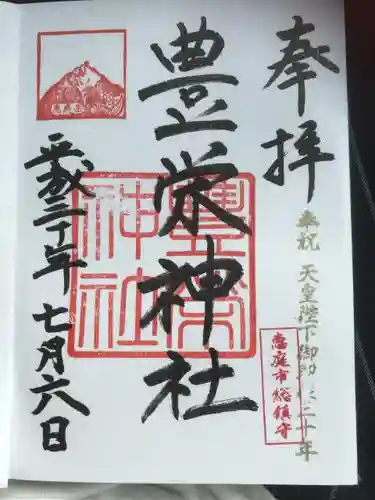 奉拝
奉祝 天皇陛下御 二十年
恵庭市総鎮守
豊栄神社
豊栄神社
平成二十一年七月六日